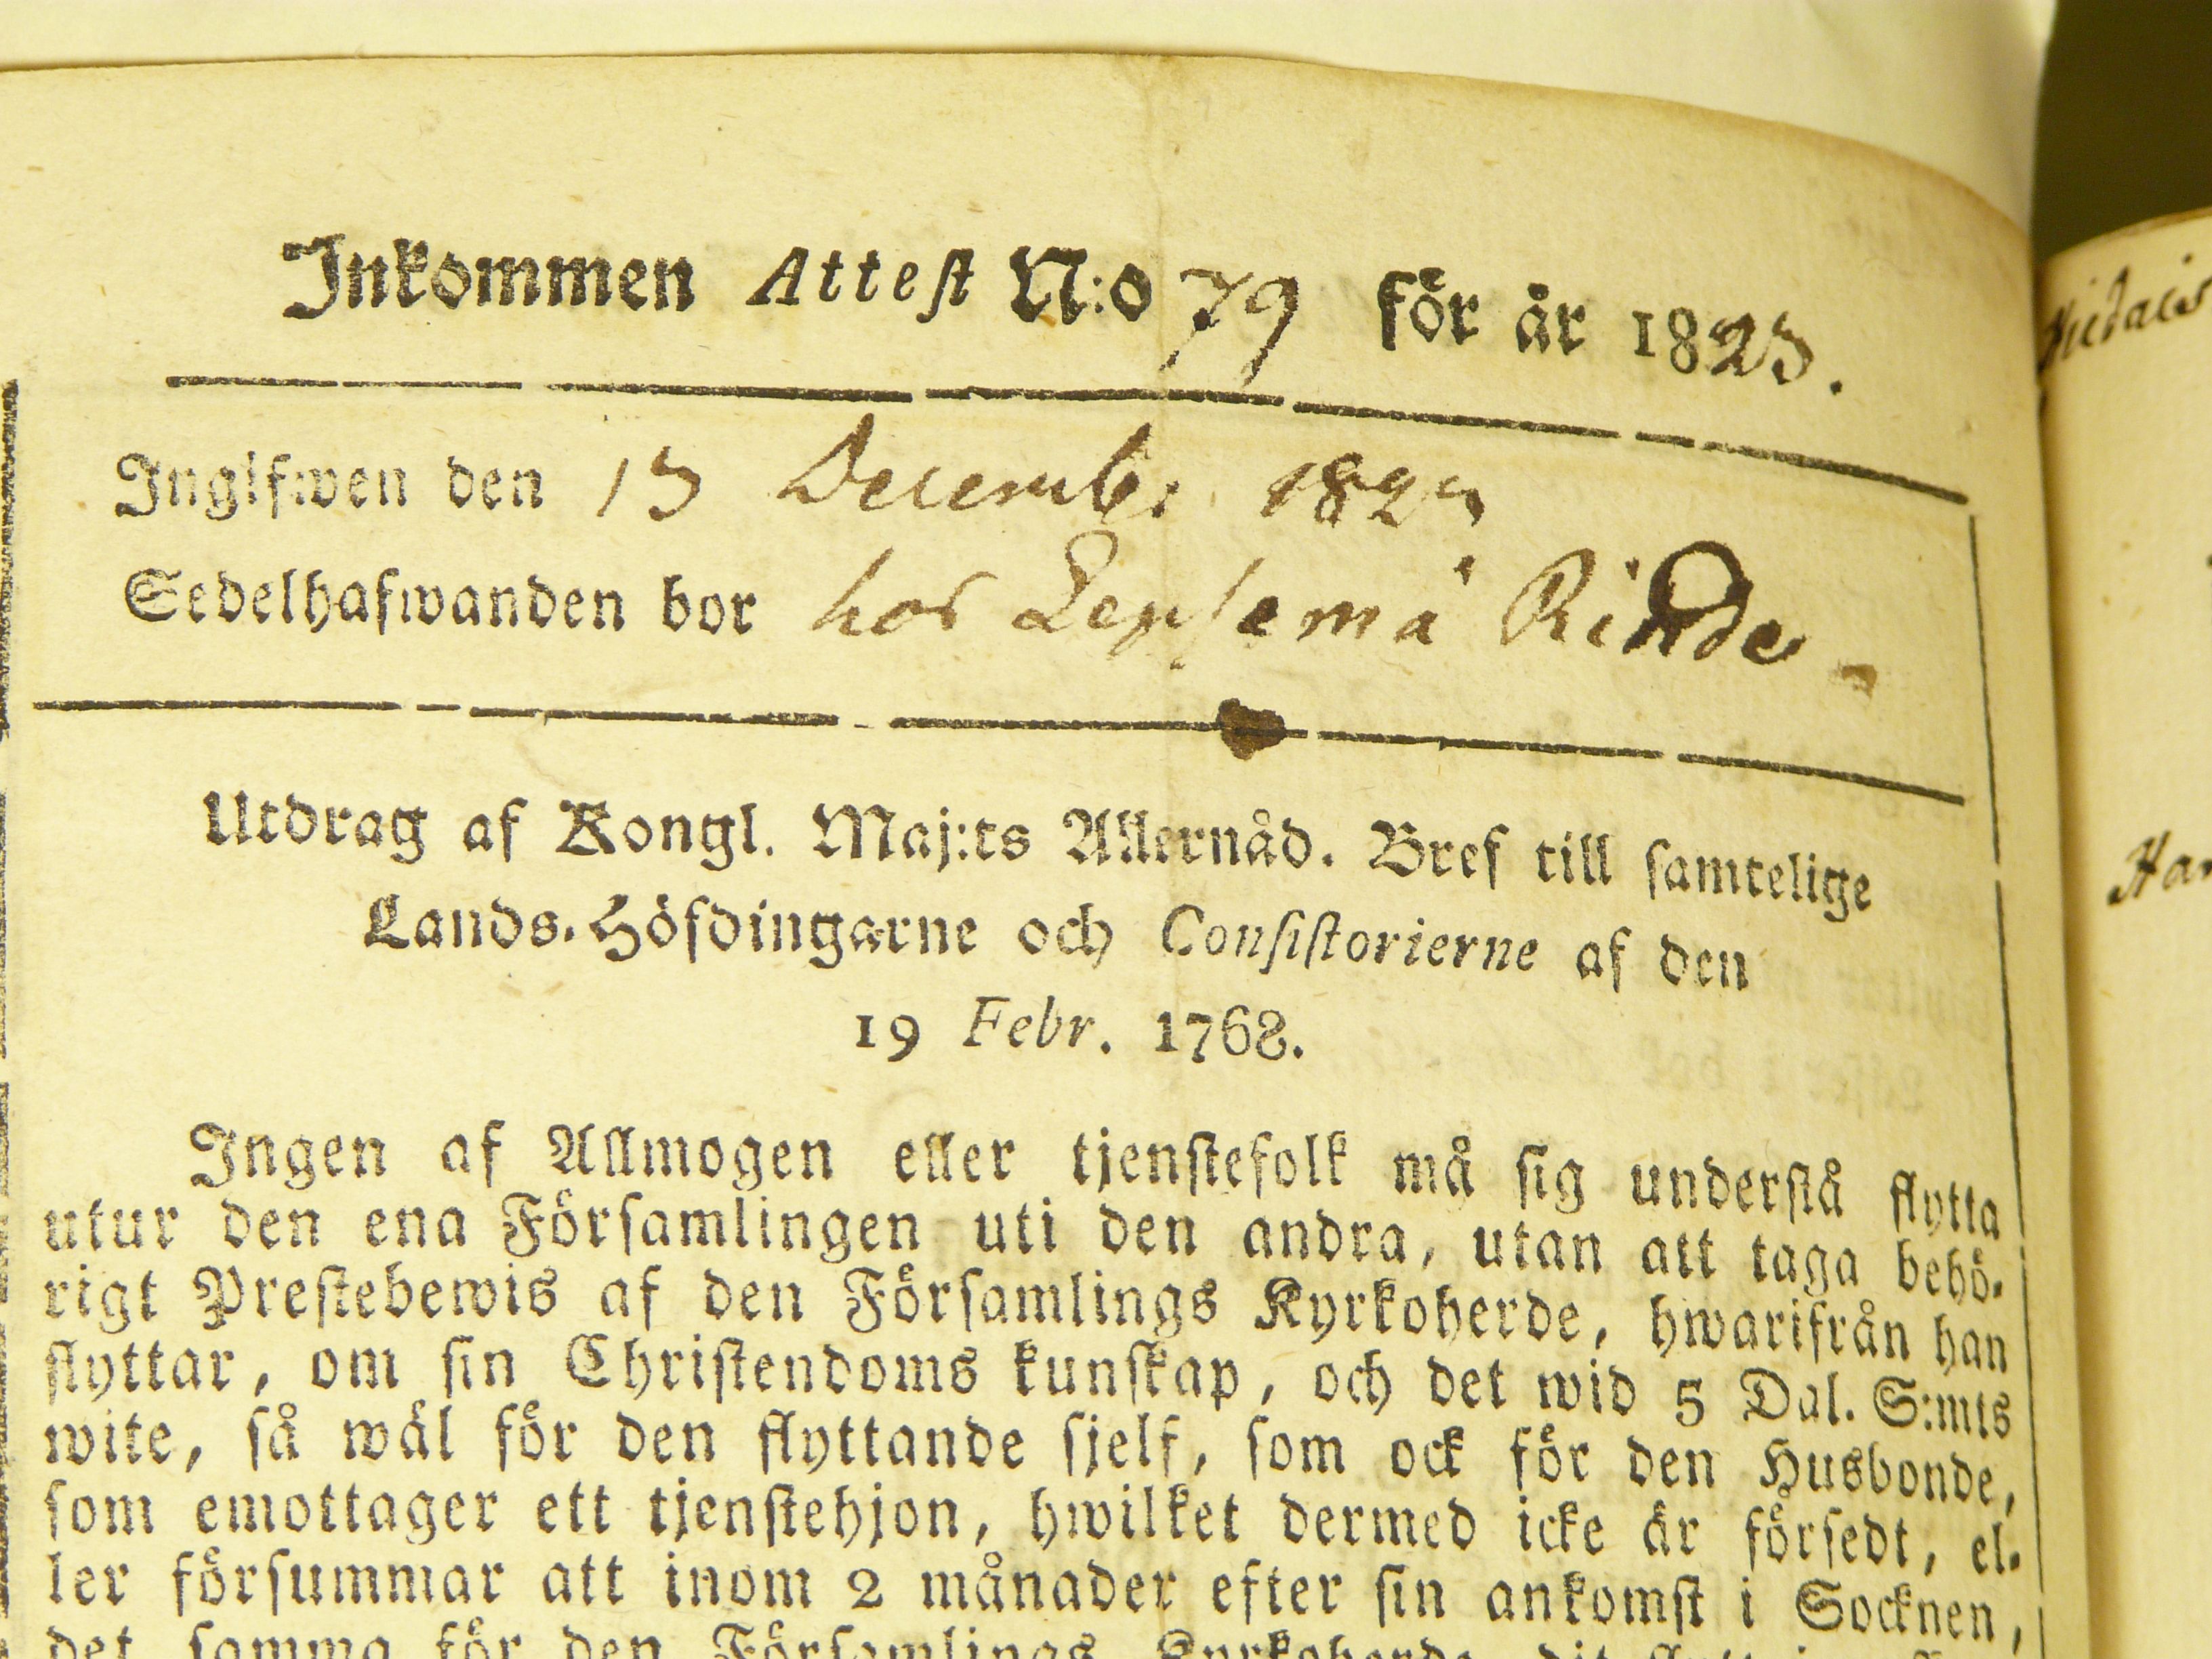 Inkommen Attest N:o 79 för år 1823.
Ingifwen den 13 Decemb: 1823
Sedelhafwanden bor hos Lepsemä
Utdrag af Kongl. Maj:ts Allernåd. Bref till samtelige
Lands-Höfdingarne och Consistorierne af den
19 Febr. 1768.
Ingen af Allmogen eller tjenstefolk må sig understå flytta
utur den ena Församlingen uti den andra, utan att taga behö-
rigt Prestebewis af den Församlings Kyrkoherde, hwarifrån han
flyttar, om sin Christendoms kunskap, och det wid 5 Dal. S:mts
wite, så wäl för den flyttande sjelf, som ock för den Husbonde,
som emottager ett tjenstehjon, hwilket dermed icke är försedt, el-
ler försummar att inom 2 månader efter sin ankomst i Socknen,
det samma för den Församlings Kyrkoherde, dit
Har